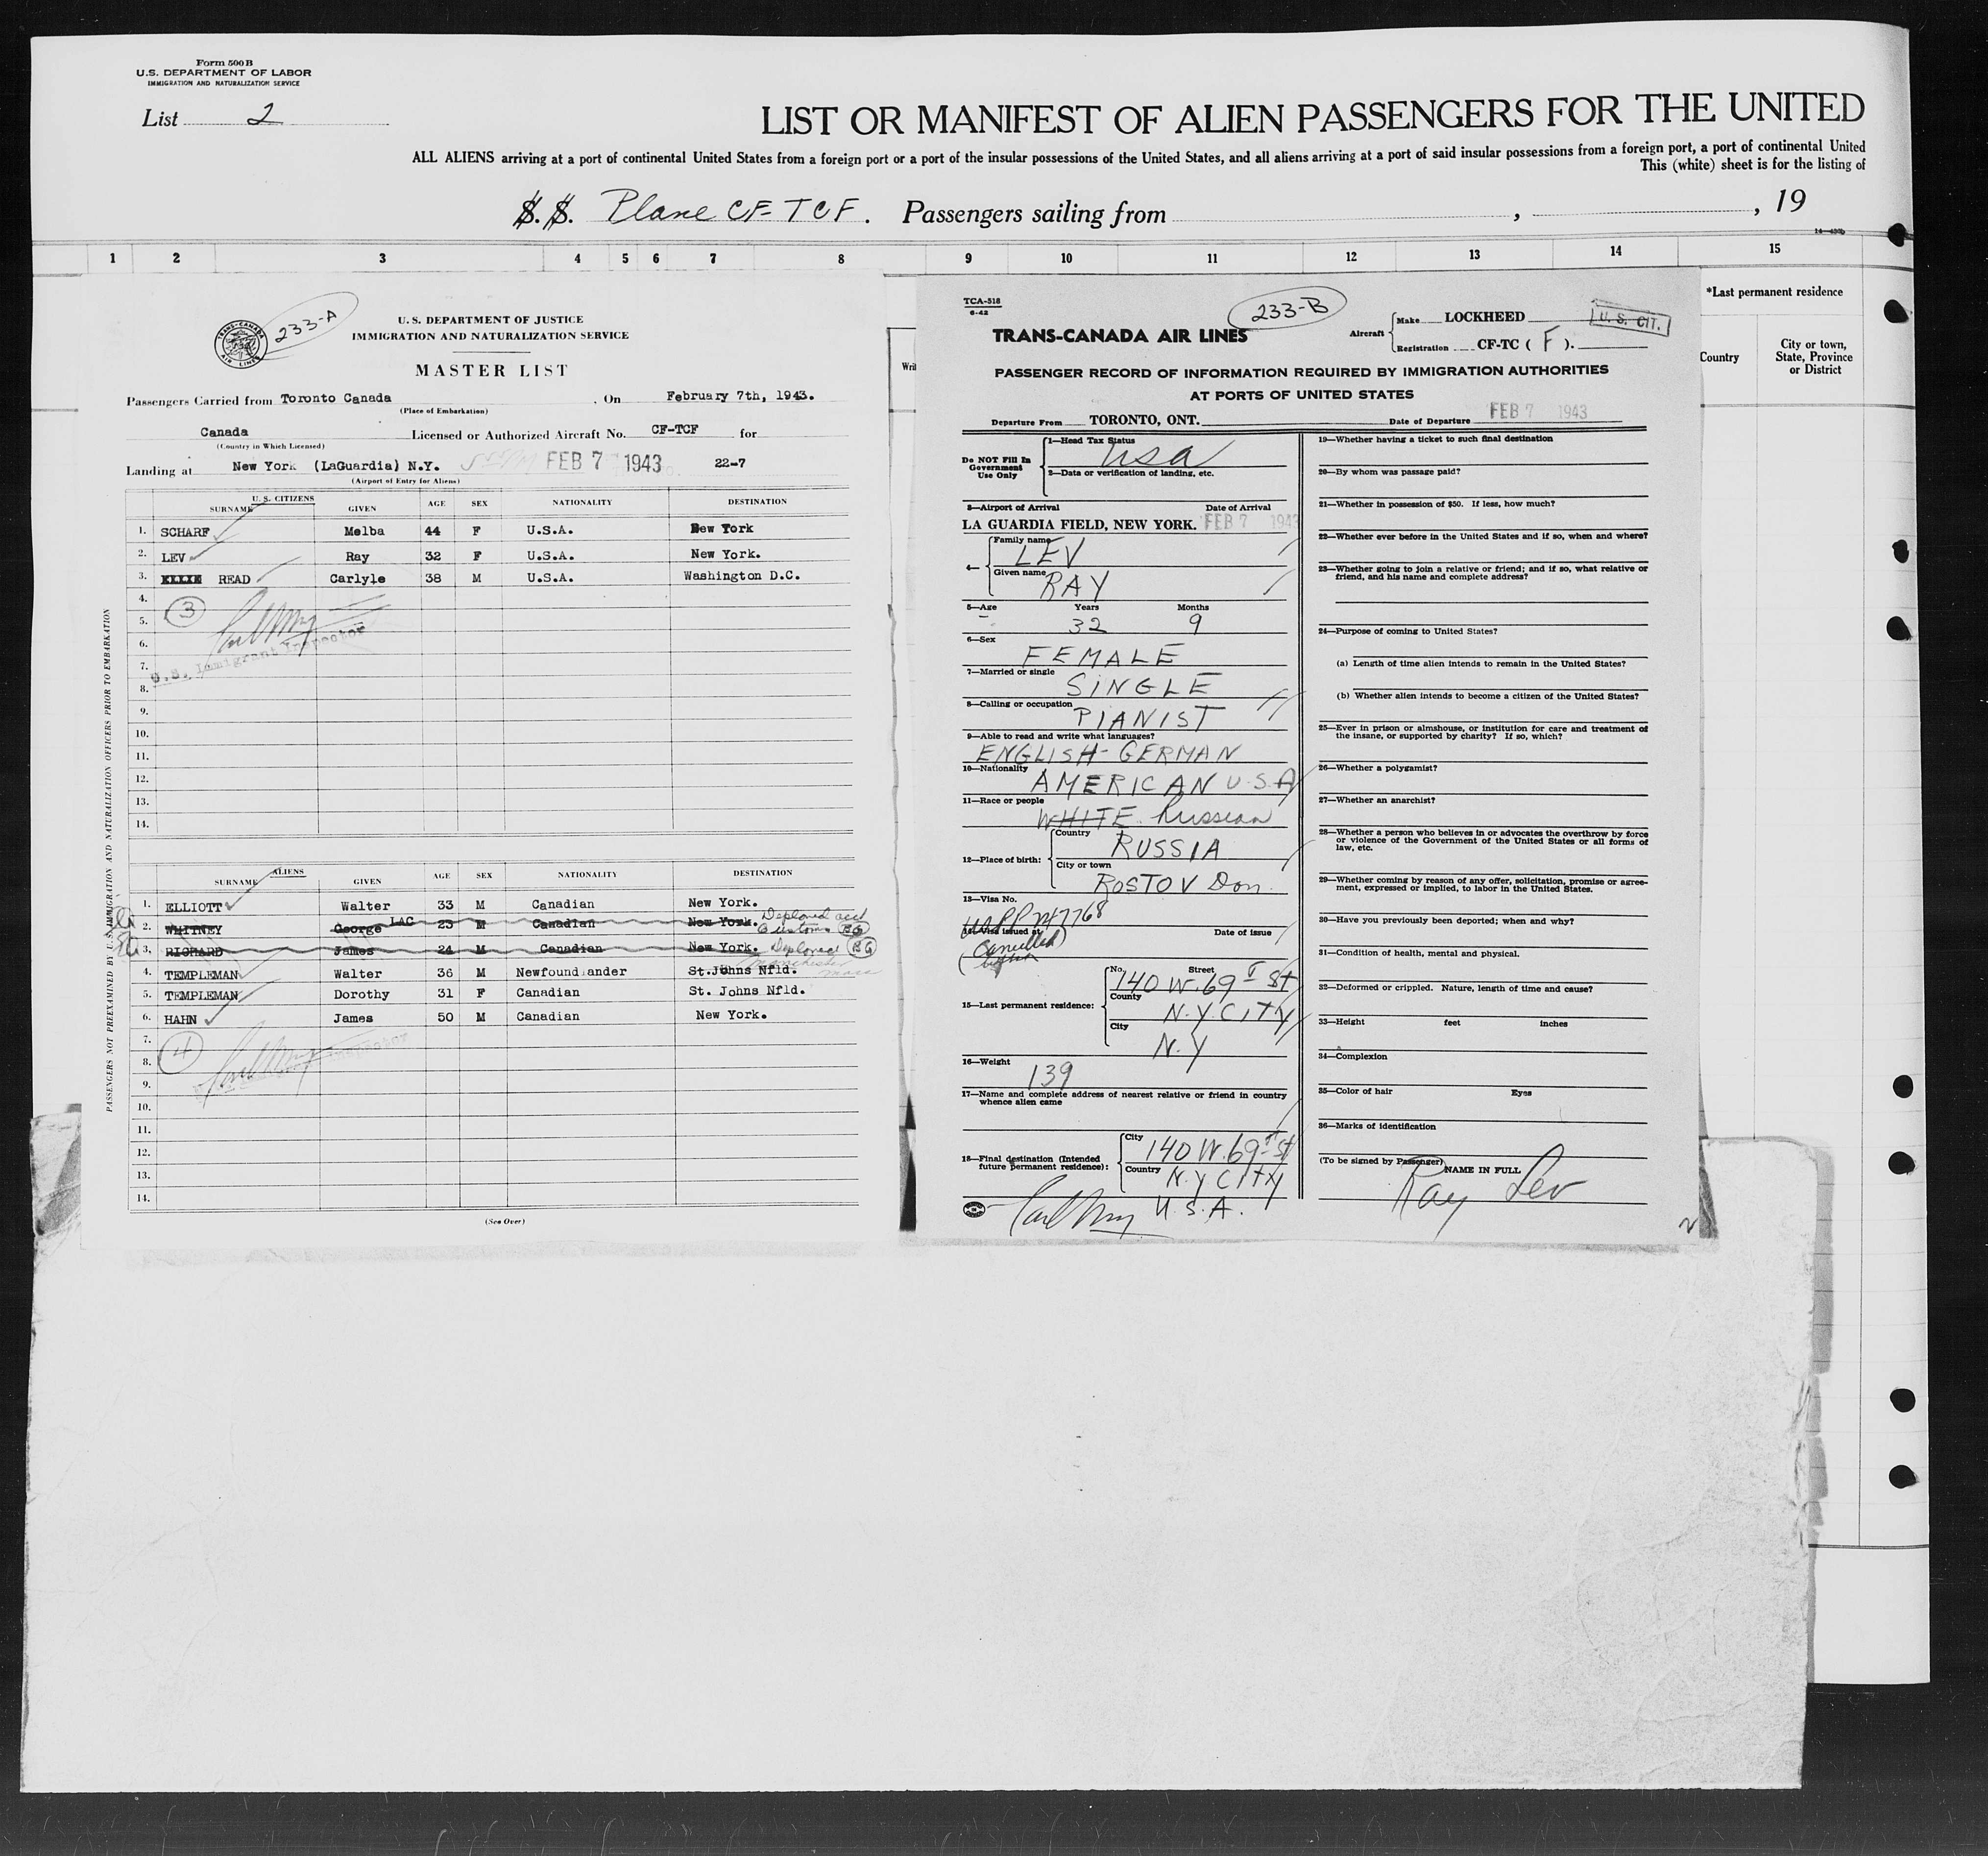 Form 500 B
U.S. DEPARTMENT OF LABOR
IMMIGRATION AND NATURALIZATION SERVICE
List 2
LIST OR MANIFEST OF ALIEN PASSENGERS FOR THE UNITED
ALL ALIENS arriving at a port of continental United States from a foreign port or a port of the insular possessions of the United States, and all aliens arriving at a port of said insular possessions from a foreign port, a port of continental United
This (white) sheet is for the listing of
S.S. Plane CF-TCF. Passengers sailing from , , 19
1 2 3 4 5 6 7 8 9 10 11 12 13 14 15
*Last permanent residence
Country
City or town, State, Province or District
TRANS-CANADA AIR LINES
233-A
U. S. DEPARTMENT OF JUSTICE
IMMIGRATION AND NATURALIZATION SERVICE
MASTER LIST
Passengers Carried from Toronto Canada , On February 7th, 1943.
(Place of Embarkation)
Canada Licensed or Authorized Aircraft No. CF-TCF for
(Country in Which Licensed)
Landing at New York (LaGuardia) N.Y. FEB 7 1943 22-7
(Airport of Entry for Aliens)
U. S. CITIZENS
SURNAME GIVEN AGE SEX NATIONALITY DESTINATION
1. SCHARF Melba 44 F U.S.A. New York
2. LEV Ray 32 F U.S.A. New York.
3. READ Carlyle 38 M U.S.A. Washington D.C.
4.
(3)
5.
6.
U.S. Immigrant Inspector
7.
8.
9.
10.
11.
12.
13.
14.
ALIENS
SURNAME GIVEN AGE SEX NATIONALITY DESTINATION
1. ELLIOTT Walter 33 M Canadian New York.
2. WHITNEY George LAC 23 M Canadian New York. Deplaned acct Customs BG
3. RICHARD James 24 M Canadian New York. Deplaned BG
Manchester Mass
4. TEMPLEMAN Walter 36 M Newfound ander St.Johns Nfld.
5. TEMPLEMAN Dorothy 31 F Canadian St. Johns Nfld.
6. HAHN James 50 M Canadian New York.
7.
(4)
8.
Inspector
9.
10.
11.
12.
13.
14.
(See Over)
PASSENGERS NOT PREEXAMINED BY U. S. IMMIGRATION AND NATURALIZATION OFFICERS PRIOR TO EMBARKATION
TCA-518
6-42
233-B
TRANS-CANADA AIR LINES
Aircraft Make LOCKHEED
Registration CF-TC ( F ).
U. S. CIT.
PASSENGER RECORD OF INFORMATION REQUIRED BY IMMIGRATION AUTHORITIES
AT PORTS OF UNITED STATES
Departure From TORONTO, ONT. Date of Departure FEB 7 1943
Do NOT Fill In Government Use Only
1—Head Tax Status
USA
2—Data or verification of landing, etc.
3—Airport of Arrival Date of Arrival
LA GUARDIA FIELD, NEW YORK. FEB 7 1943
4— Family name LEV
Given name RAY
5—Age Years Months
32 9
6—Sex
FEMALE
7—Married or single
SINGLE
8—Calling or occupation
PIANIST
9—Able to read and write what languages?
ENGLISH-GERMAN
10—Nationality
AMERICAN U.S.A
11—Race or people
WHITE Russian
12—Place of birth: Country RUSSIA
City or town
ROSTOV Don
13—Visa No.
USPP 247768
14—Visa issued at Date of issue
Cancelled
15—Last permanent residence: No. Street
140 W. 69 St
County
N.Y. CITY
City
N.Y
16—Weight
139
17—Name and complete address of nearest relative or friend in country whence alien came
18—Final destination (Intended future permanent residence): City 140 W. 69 St
Country N.Y CITY
U.S.A.
19—Whether having a ticket to such final destination
20—By whom was passage paid?
21—Whether in possession of $50. If less, how much?
22—Whether ever before in the United States and if so, when and where?
23—Whether going to join a relative or friend; and if so, what relative or friend, and his name and complete address?
24—Purpose of coming to United States?
(a) Length of time alien intends to remain in the United States?
(b) Whether alien intends to become a citizen of the United States?
25—Ever in prison or almshouse, or institution for care and treatment of the insane, or supported by charity? If so, which?
26—Whether a polygamist?
27—Whether an anarchist?
28—Whether a person who believes in or advocates the overthrow by force or violence of the Government of the United States or all forms of law, etc.
29—Whether coming by reason of any offer, solicitation, promise or agreement, expressed or implied, to labor in the United States.
30—Have you previously been deported; when and why?
31—Condition of health, mental and physical.
32—Deformed or crippled. Nature, length of time and cause?
33—Height feet inches
34—Complexion
35—Color of hair Eyes
36—Marks of identification
(To be signed by Passenger) NAME IN FULL
Ray Lev